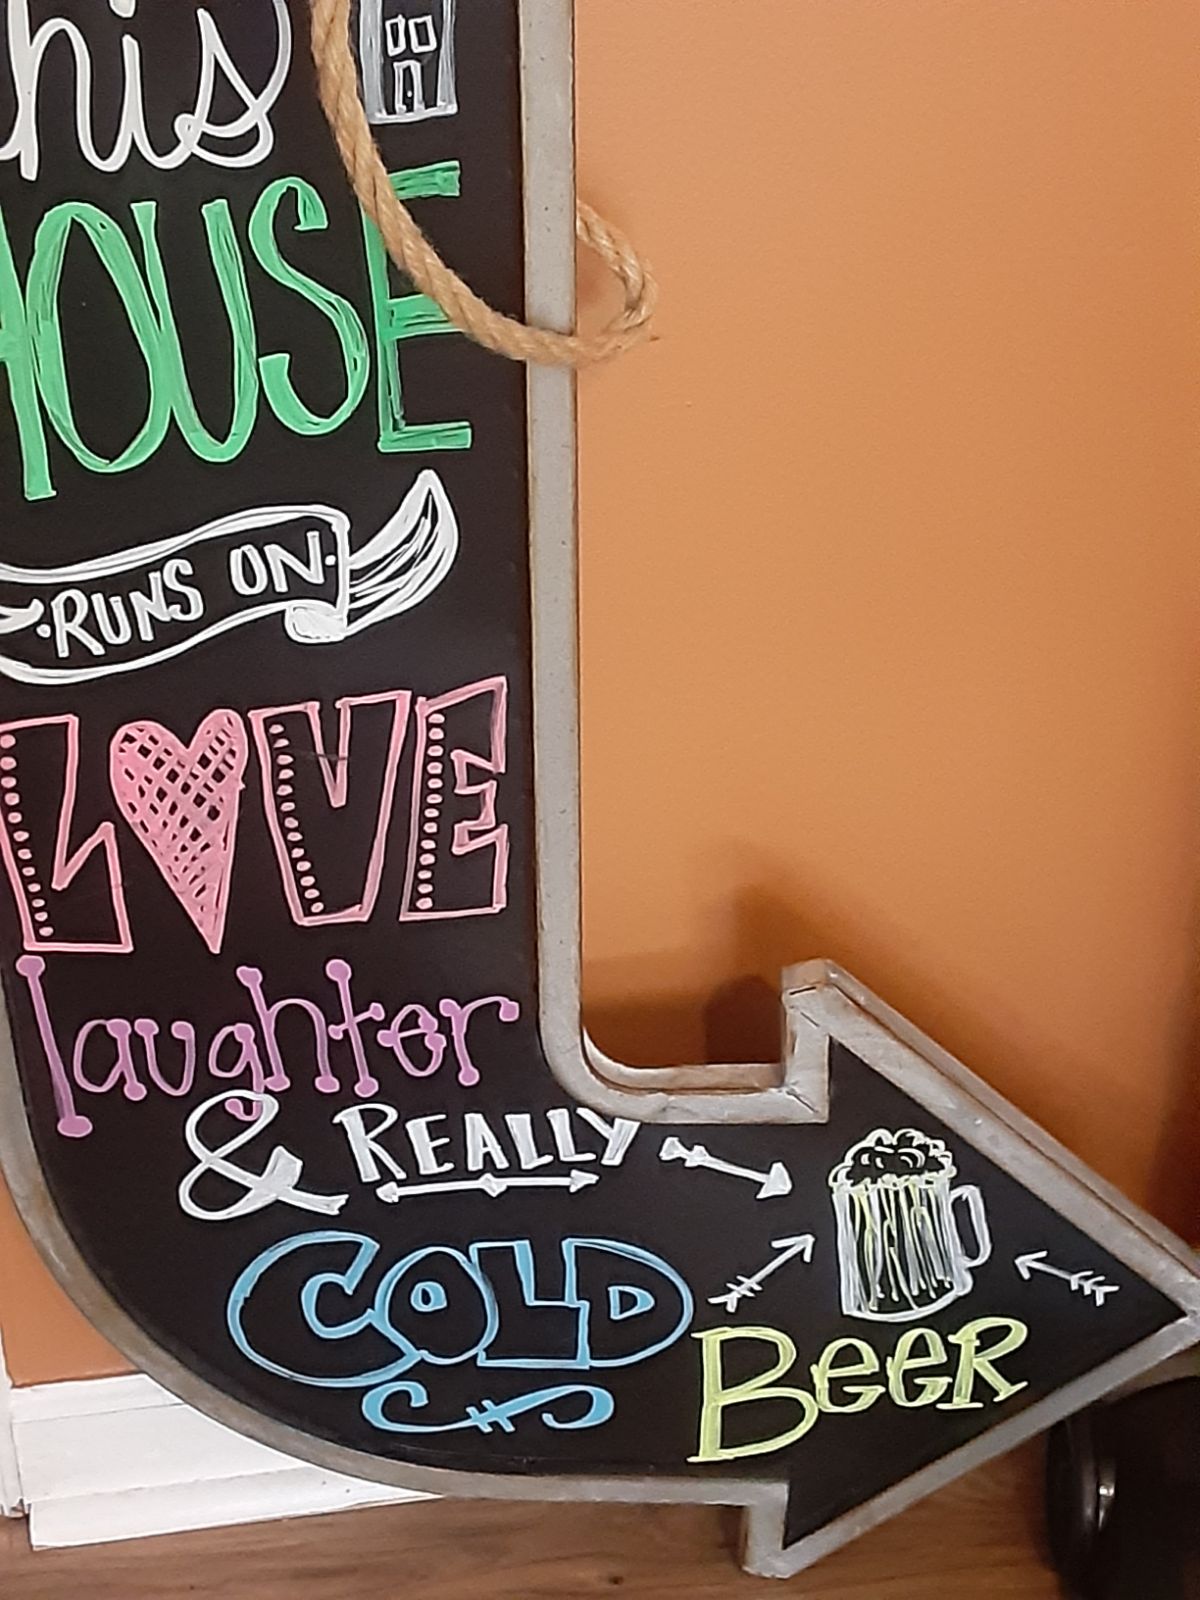 his
HOUSE
RUNS ON
LOVE
laughter
& REALLY
COLD
BEER